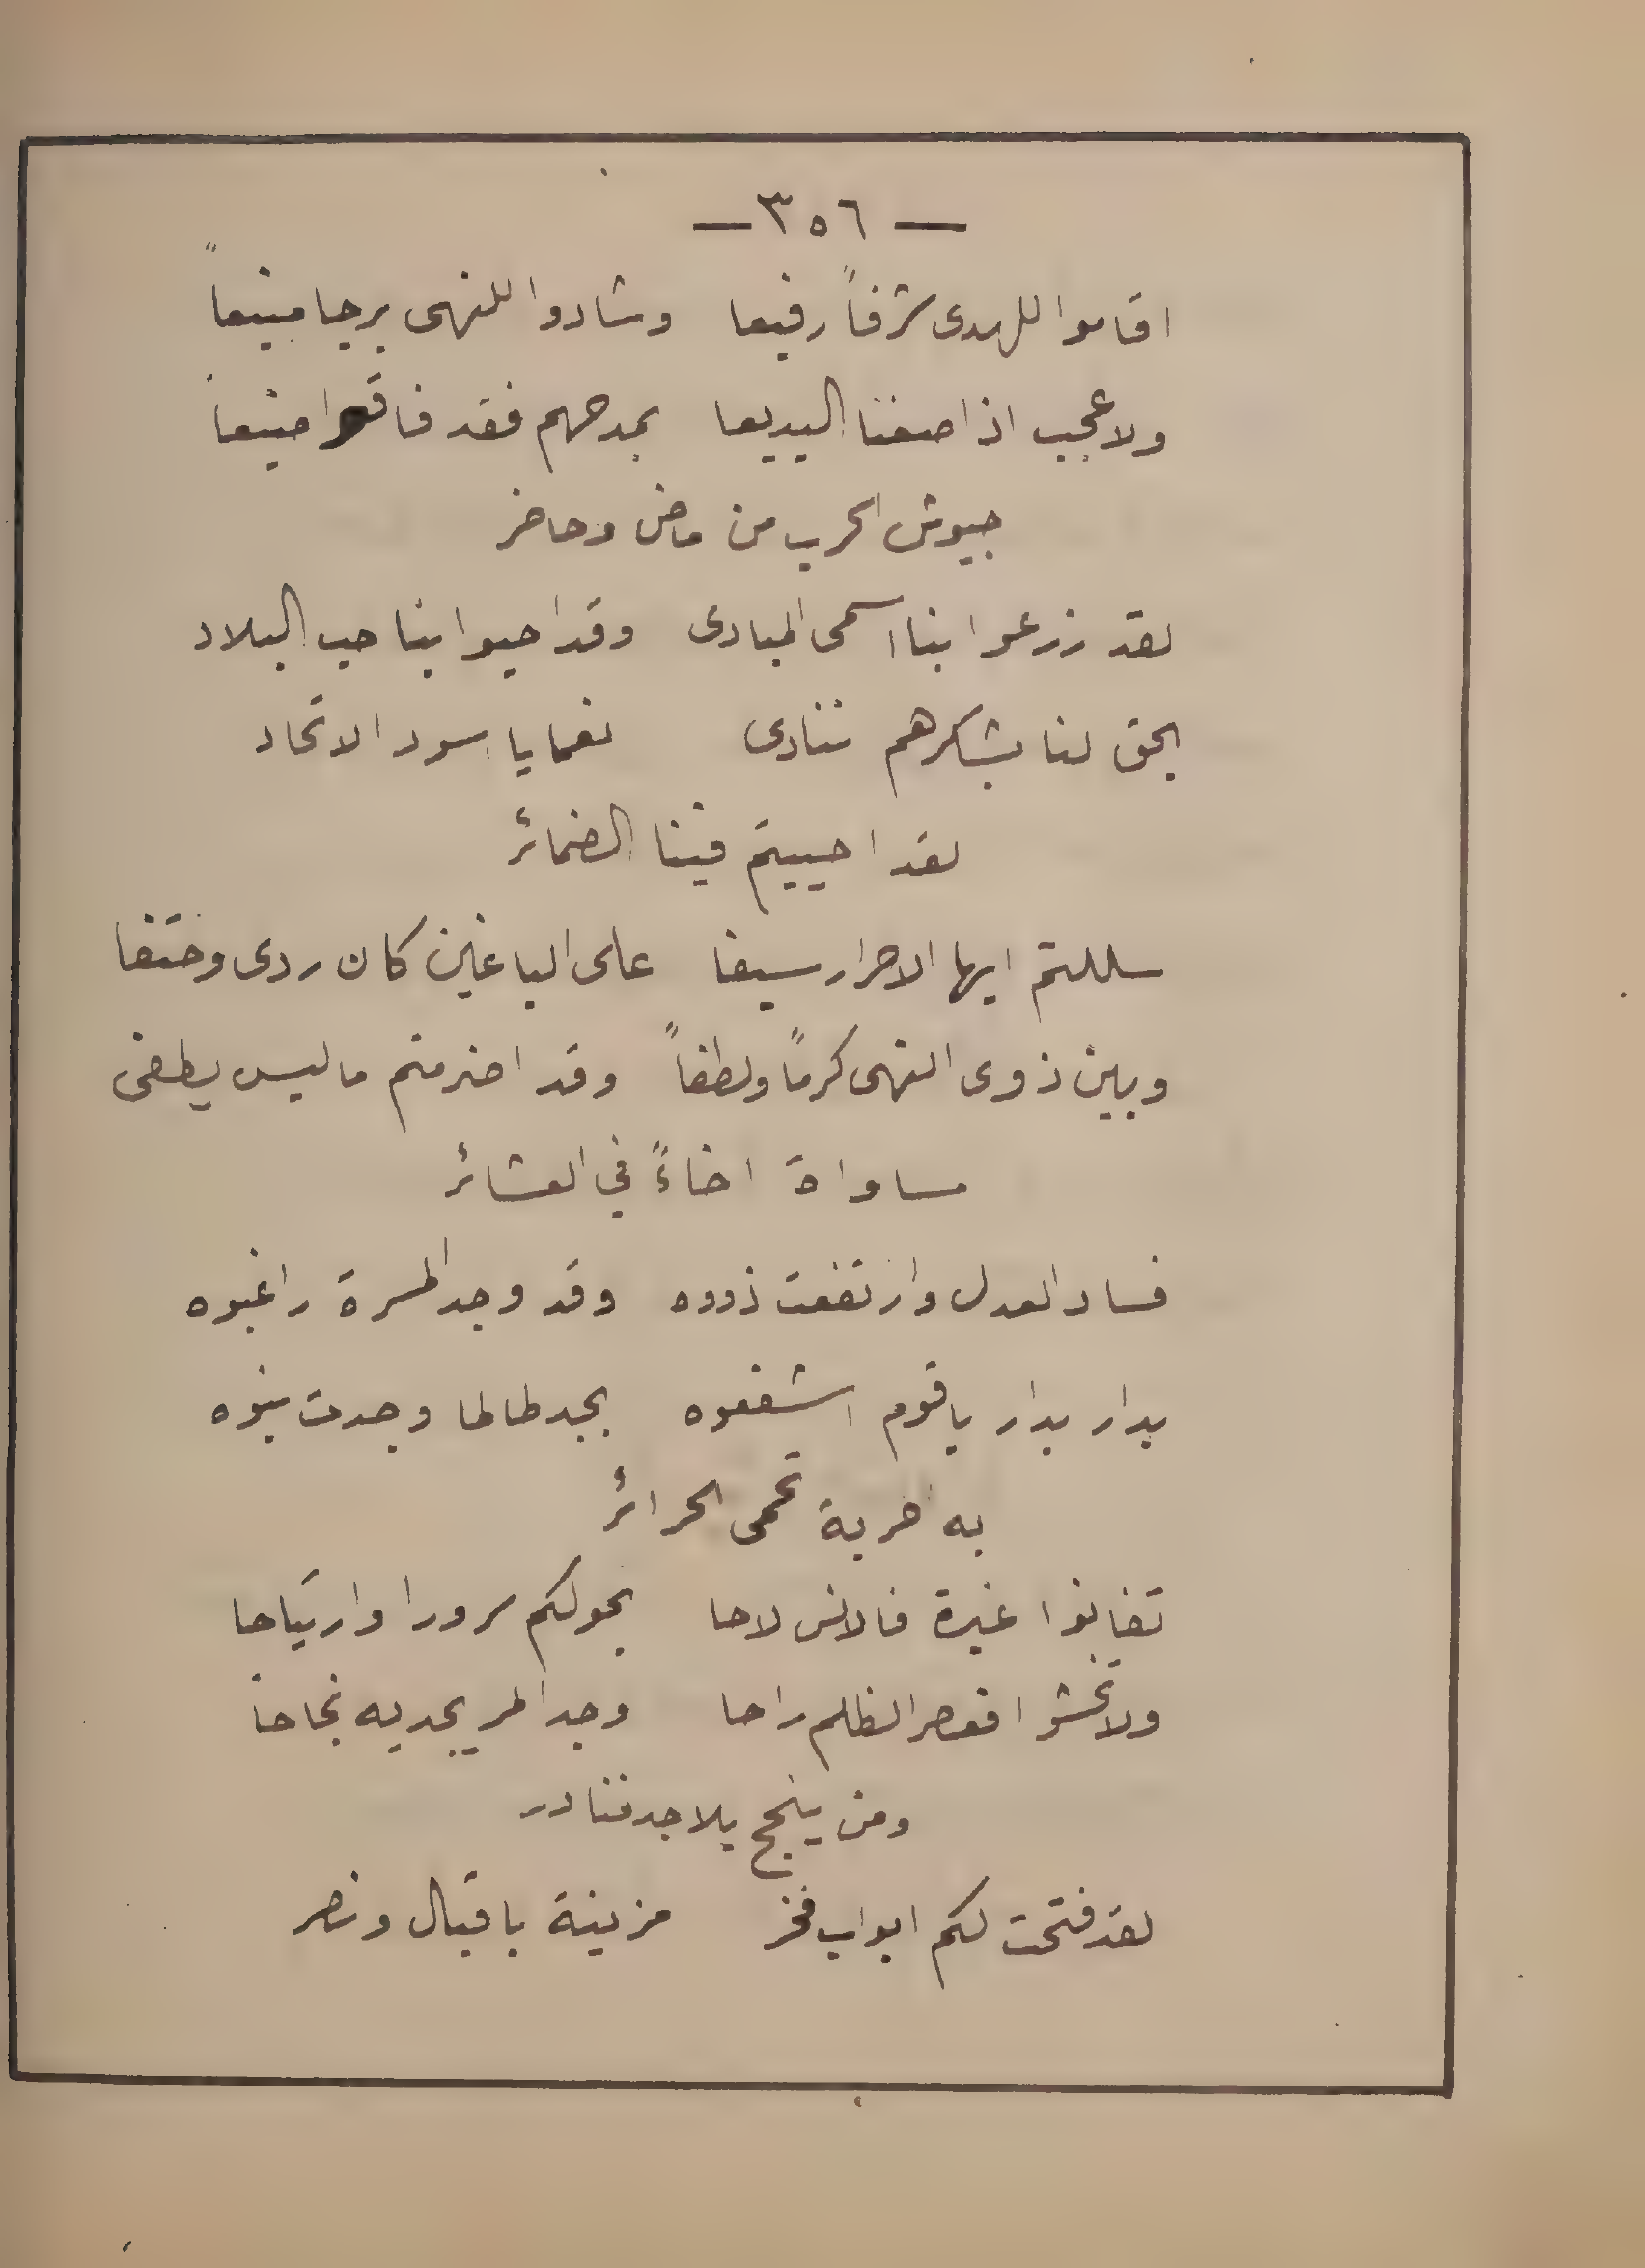 — ٣٥٦ —
اقاموا للهدى شرفاً رفيعا وشادوا للنهى برجا منيعاً
ولا عجب اذا صغنا البديعا بمدحهم فقد فاقوا جميعا
جيوش الحرب من ماض وحاضر
لقد زرعوا بنا اسمى المبادى وقد احيوا بنا حب البلاد
بحق لنا بشكرهم ننادى نعما يا اسود الاتحاد
لقد احييتم فينا الضمائر
سللتم ايها الاحرار سيفا على الباغين كان ردى وحتفا
وبين ذوى النهى كرمًا ولطفاً وقد اضرمتم ما ليس يطفى
مساواة اخاءً في العشائر
فساد العدل وارتفعت ذووه وقد وجد المسرة راغبوه
بدار بدار يا قوم اشفعوه بجد طالما وجدت بنوه
به حرية تحمى الحرائر
تفانوا غيرة فالانس لاحا بحولكم سرورا وارتياحا
ولا تخشوا فعصر الظلم راحا وجد المر يجديه نجاحا
ومن ينجح بلا جد فنادر
لقد فتحت لكم ابواب فخر مزينة باقبال ونصر